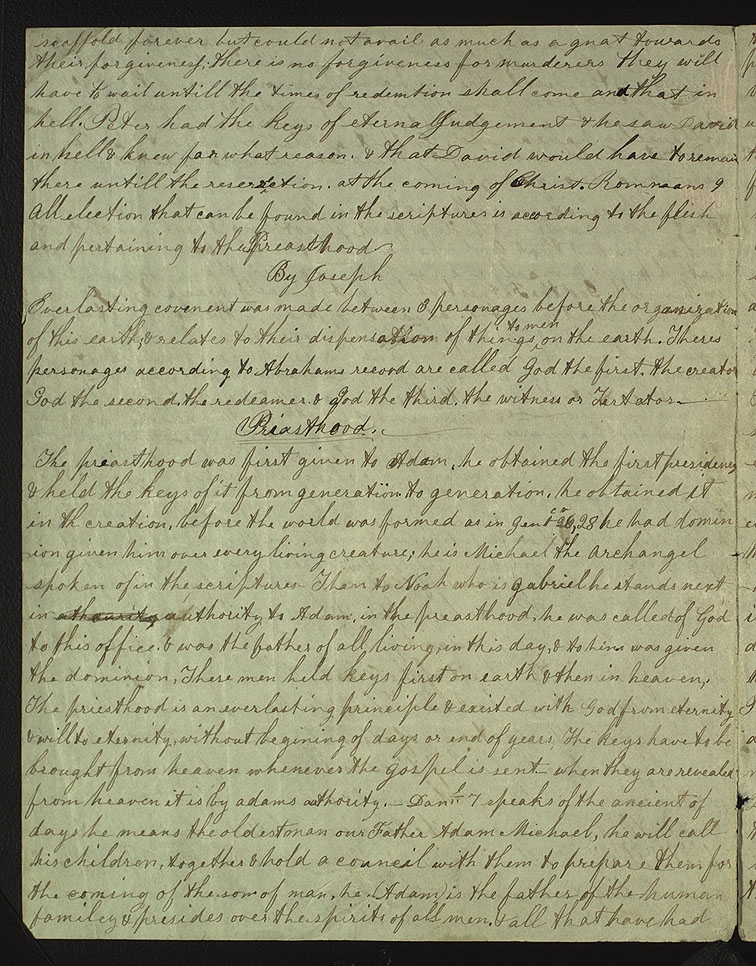 scaffold forever but could not avail as much as a gnat towards
their forgiveness; there is no forgiveness for murderers they will
have to wait untill the times of redemtion shall come and that in
hell. Peter had the keys of eternal Judgement & he saw David
in hell & knew for what reason. & that David would have to remain
there untill the reserection. at the coming of Christ. Romnaans 9
All election that can be found in the scriptures is acording to the flesh
and pertaining to the Preasthood
By Joseph
Everlasting covenent was made between 3 personages before the organization
of this earth, & relates to their dispensation of things to men on the earth. Theres
personages according to Abrahams record are called God the first. the creator
God the second. the redeamer. & God the third. the witness or Testator
Priasthood.
The preasthood was first given to Adam, he obtained the first presidency
& held the keys of it from generation to generation, he obtained it
in th creation, before the world was formed as in Gen 1st 26, 28 he had domin
ion given him over every living creature; he is Michael the archangel
spoken of in the scriptures Them to Noah who is gabriel he stands next
in athourity authority to Adam, in the preasthood, he was called of God
to this office. & was the father of all, living, in this day, & to him was given
the dominion, These men held keys first on earth & then in heaven,
The priesthood is an everlasting principle & existed with God from eternity
& will to eternity, without begining of days or end of years, The keys have to be
brought from heaven whenever the gospel is sent when they are revealed
from heaven it is by adams athority. - Danl 7 speaks of the ancient of
days he means the oldest man our Father Adam Michael, he will call
his children, together & hold a council with them to prepare them for
the coming of the som of man. he (Adam) is the father of the human
familey & presides over the spirits of all men. & all that have had